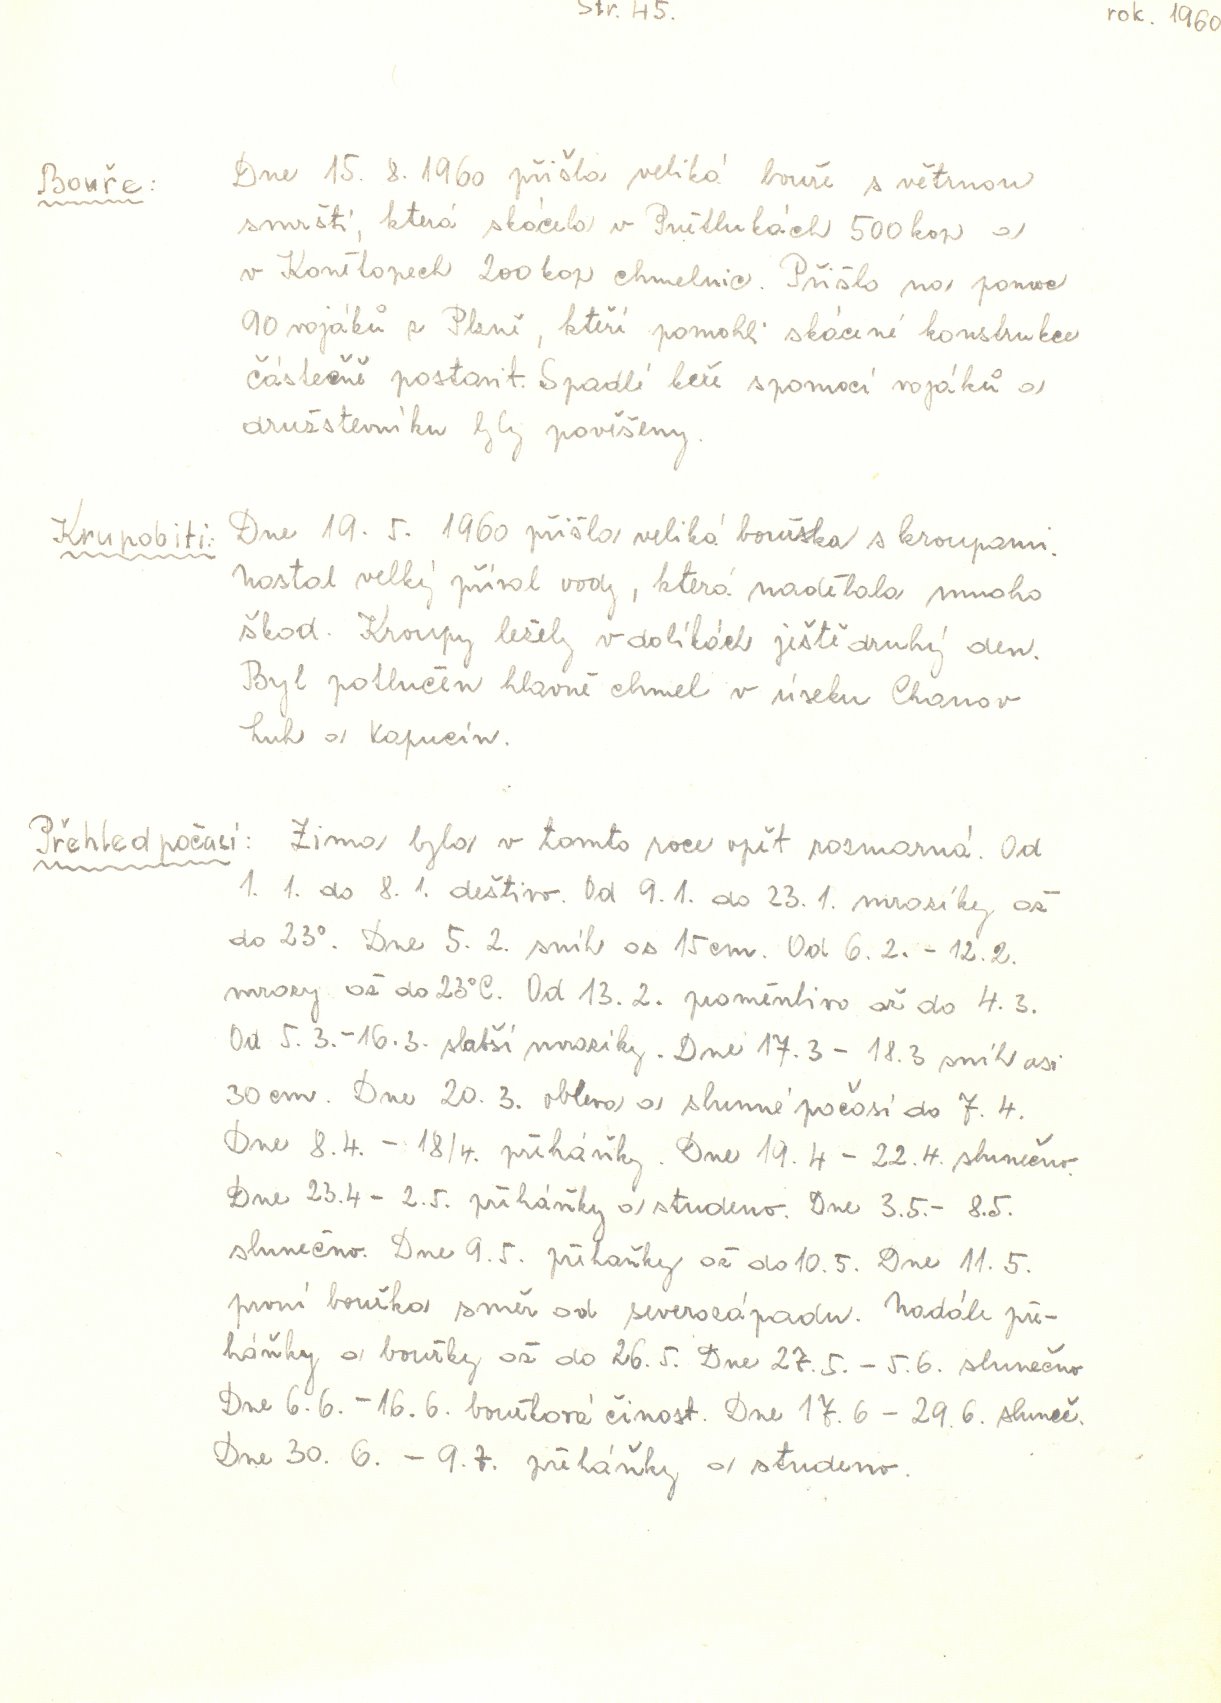 Str. 45.
rok. 1960
Bouře: Dne 15. 8. 1960 přišla veliká bouře s větrnou
smrští, která skácela v Prětlukách 500 kop a
v Konětopech 200 kop chmelnic. Přišlo na pomoc
90 vojáků z Plzně, kteří pomohli skácené konstrukce
částečně postavit. Spadlé keře spomocí vojáků a
družstevníku byly pověšeny.
Krupobiti: Dne 19. 5. 1960 přišla veliká bouřka s kroupami.
Nastal velký příval vody, která nadělala mnoho
škod. Kroupy ležely v dolíkách ještě druhý den.
Byl potlučen hlavně chmel v úseku Chanov
luh a Kapucín.
Přehled počasí: Zima byla v tomto roce opět rozmarná. Od
1. 1. do 8. 1. deštivo. Od 9. 1. do 23. 1. mrazíky až
do 23°. Dne 5. 2. sníh as 15 cm. Od 6. 2. - 12. 2.
mrazy až do 23°C. Od 13. 2. proměnlivo až do 4. 3.
Od 5. 3. - 16. 3. slabší mrazíky. Dne 17. 3 - 18. 3 sníh asi
30 cm. Dne 20. 3. obleva a slunné počasí do 7. 4.
Dne 8. 4. - 18/4. přeháňky. Dne 19. 4 - 22. 4. slunečno.
Dne 23. 4 - 2. 5. přeháňky a studeno. Dne 3. 5. - 8. 5.
slunečno. Dne 9. 5. přeháňky až do 10. 5. Dne 11. 5.
první bouřka směr od severozápadu. Nadále pře-
háňky a bouřky až do 26. 5. Dne 27. 5. - 5. 6. slunečno
Dne 6. 6. - 16. 6. bouřková činost. Dne 17. 6 - 29. 6. sluneč.
Dne 30. 6. - 9. 7. přeháňky a studeno.